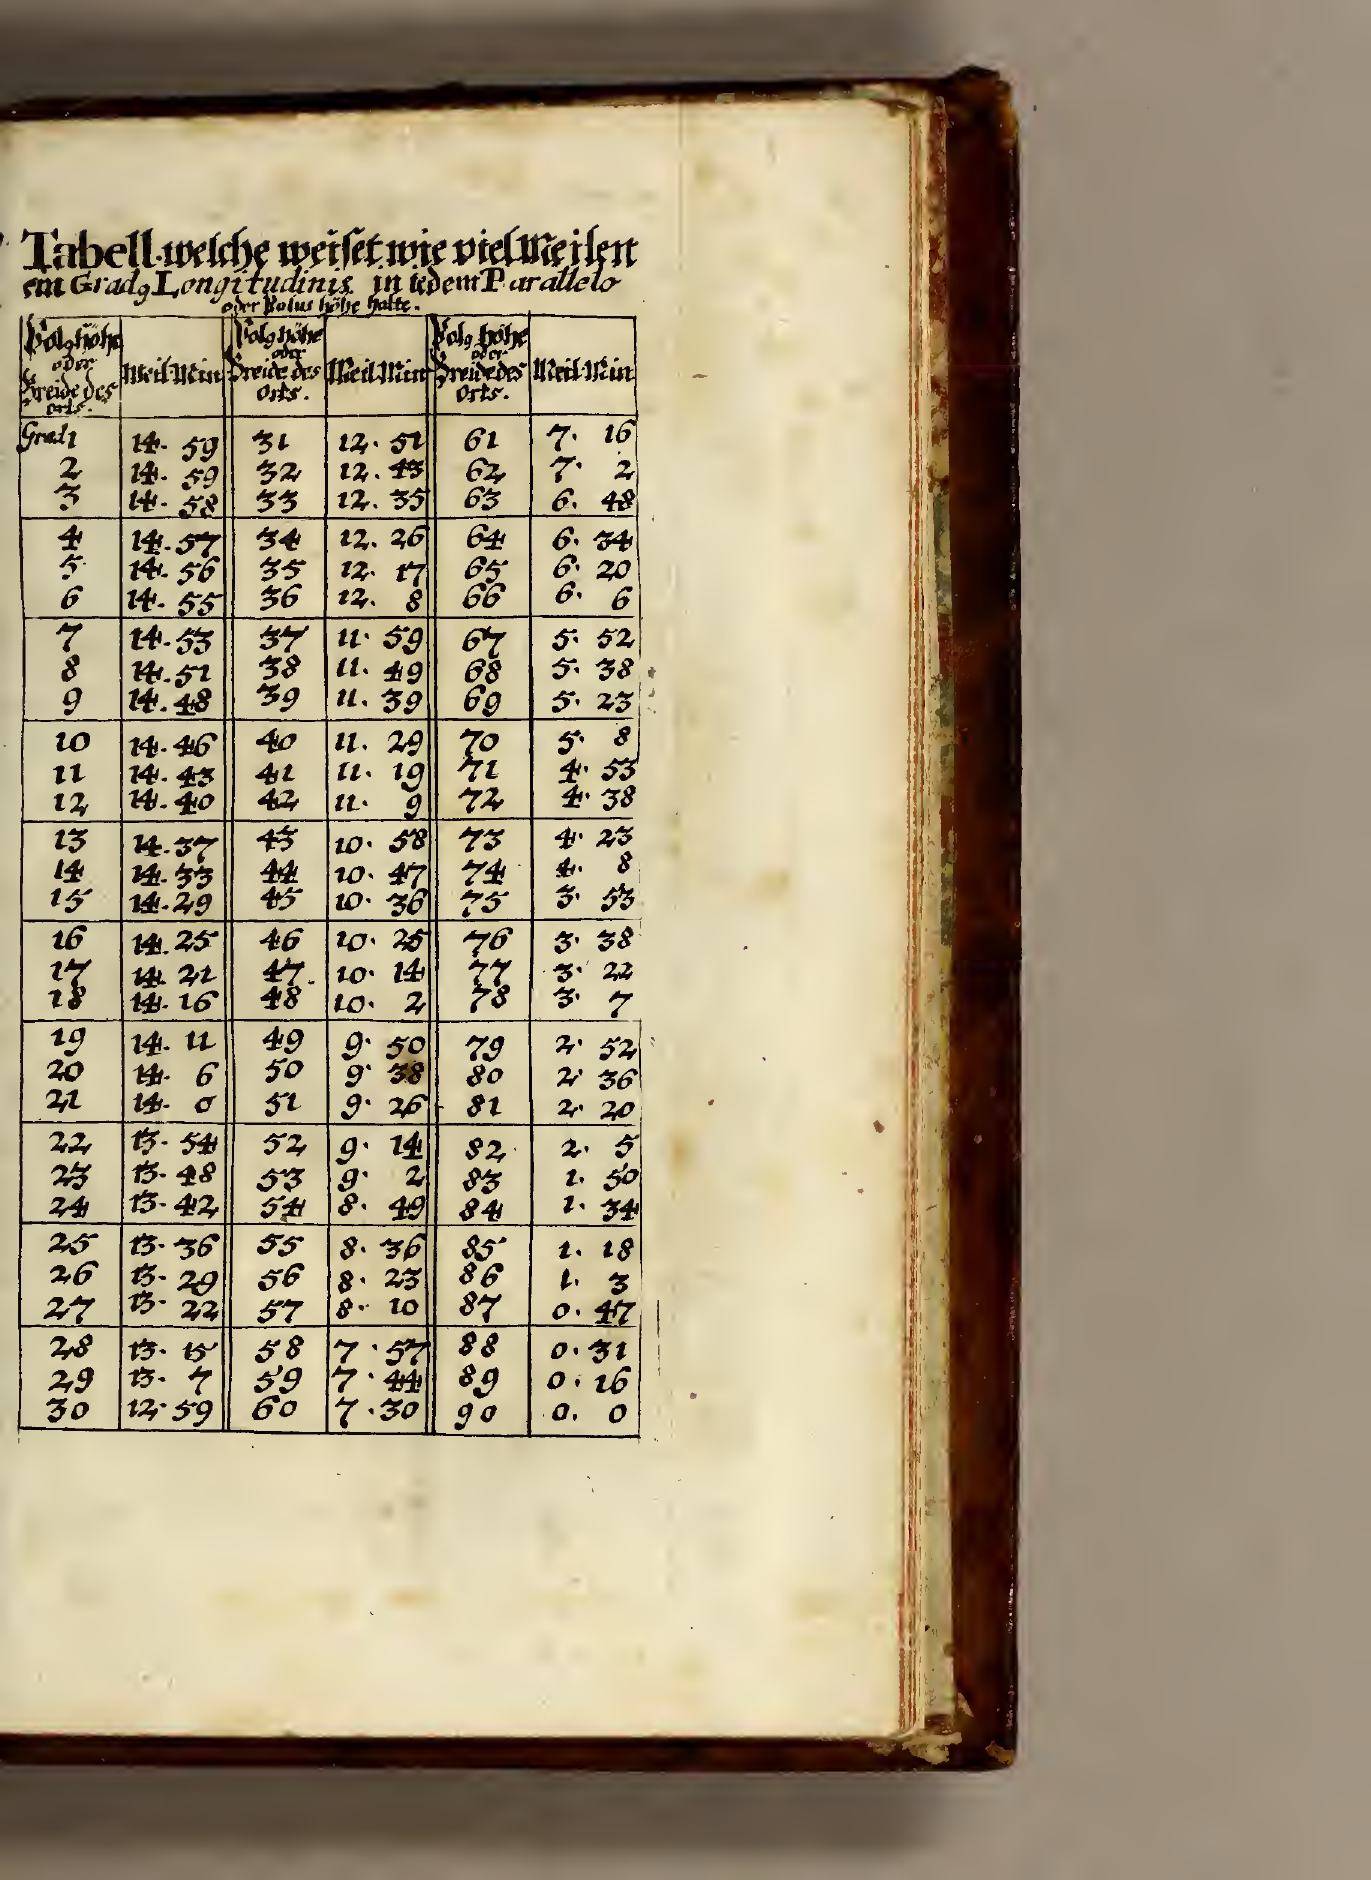 Tabell welche weiset wie viel Meilen
ein Gradg Longitudinis in iedem Parallelo
oder Polus höhe halte.
Polg höhe oder Breide des orts. Meil Min Polg höhe oder Breide des orts. Meil Min Polg höhe oder Breide des orts. Meil Min
Grad 1 14. 59 31 12. 51 61 7. 16
2 14. 59 32 12. 43 62 7. 2
3 14. 58 33 12. 35 63 6. 48
4 14. 57 34 12. 26 64 6. 34
5 14. 56 35 12. 17 65 6. 20
6 14. 55 36 12. 8 66 6. 6
7 14. 53 37 11. 59 67 5. 52
8 14. 51 38 11. 49 68 5. 38
9 14. 48 39 11. 39 69 5. 23
10 14. 46 40 11. 29 70 5. 8
11 14. 43 41 11. 19 71 4. 53
12 14. 40 42 11. 9 72 4. 38
13 14. 37 43 10. 58 73 4. 23
14 14. 33 44 10. 47 74 4. 8
15 14. 29 45 10. 36 75 3. 53
16 14. 25 46 10. 25 76 3. 38
17 14. 21 47 10. 14 77 3. 22
18 14. 16 48 10. 2 78 3. 7
19 14. 11 49 9. 50 79 2. 52
20 14. 6 50 9. 38 80 2. 36
21 14. 0 51 9. 26 81 2. 20
22 13. 54 52 9. 14 82 2. 5
23 13. 48 53 9. 2 83 1. 50
24 13. 42 54 8. 49 84 1. 34
25 13. 36 55 8. 36 85 1. 18
26 13. 29 56 8. 23 86 1. 3
27 13. 22 57 8. 10 87 0. 47
28 13. 15 58 7. 57 88 0. 31
29 13. 7 59 7. 44 89 0. 16
30 12. 59 60 7. 30 90 0. 0